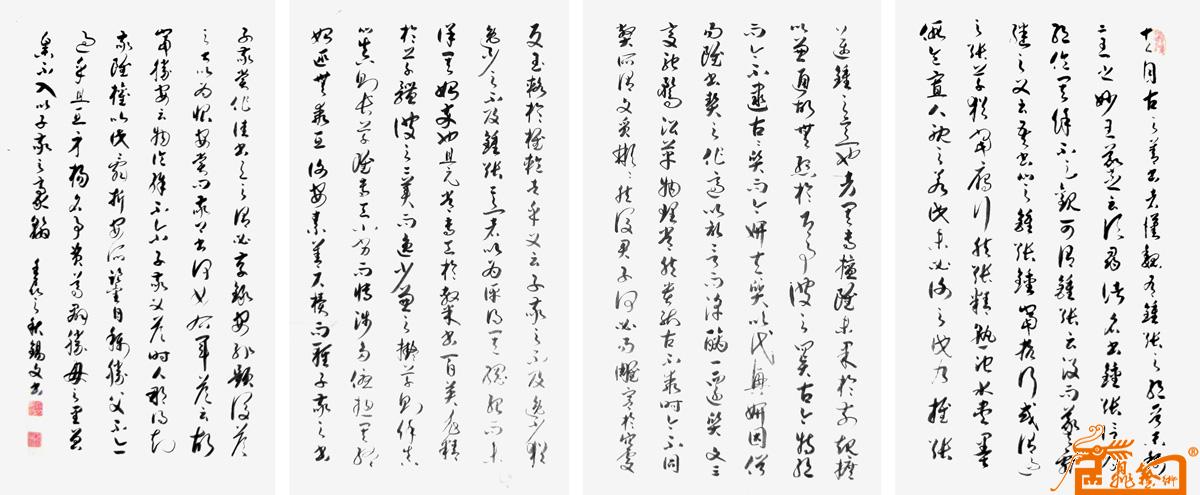 夫自古之善書者漢魏有鍾張之絕晉末稱
二王之妙王羲之云頃尋諸名書鍾張信為
絕倫其餘不足觀可謂鍾張云沒而羲獻
繼之又云吾書比之鍾張鍾當抗行或謂過
之張草猶當雁行然張精熟池水盡墨
假令寡人耽之若此未必謝之此乃推張
邁鍾之意也考其專擅雖未果於前規摭
以兼通故無慚於即事彼之四賢古今特絕
而今不逮古古質而今妍夫質以代興妍因俗
易雖書契之作適以記言而淳醨一遷質文三
變馳騖沿革物理常然貴能古不乖時今不同
弊所謂文質彬彬然後君子何必易雕宮於穴處
反玉輅於椎輪者乎又云子敬之不及逸少猶
逸少之不及鍾張意者以為評得其綱紀而未
詳其始卒也且元常專工於隸書百英尤精
於草體彼之二美而逸少兼之擬草則餘真
比真則長草雖專工小劣而博涉多優總其終
始匪無乖互謝安素善尺牘而輕子敬之書
子敬嘗作佳書與之謂必存錄安輒題後答
之甚以為恨安嘗問敬卿書何如右軍答云故
當勝安云物論殊不爾子敬又答時人那得知
敬雖權以此辭折安所鑒自稱勝父不亦
過乎且立身揚名事資尊顯勝母之里曾
參不入以子敬之豪翰 之秋錫文書